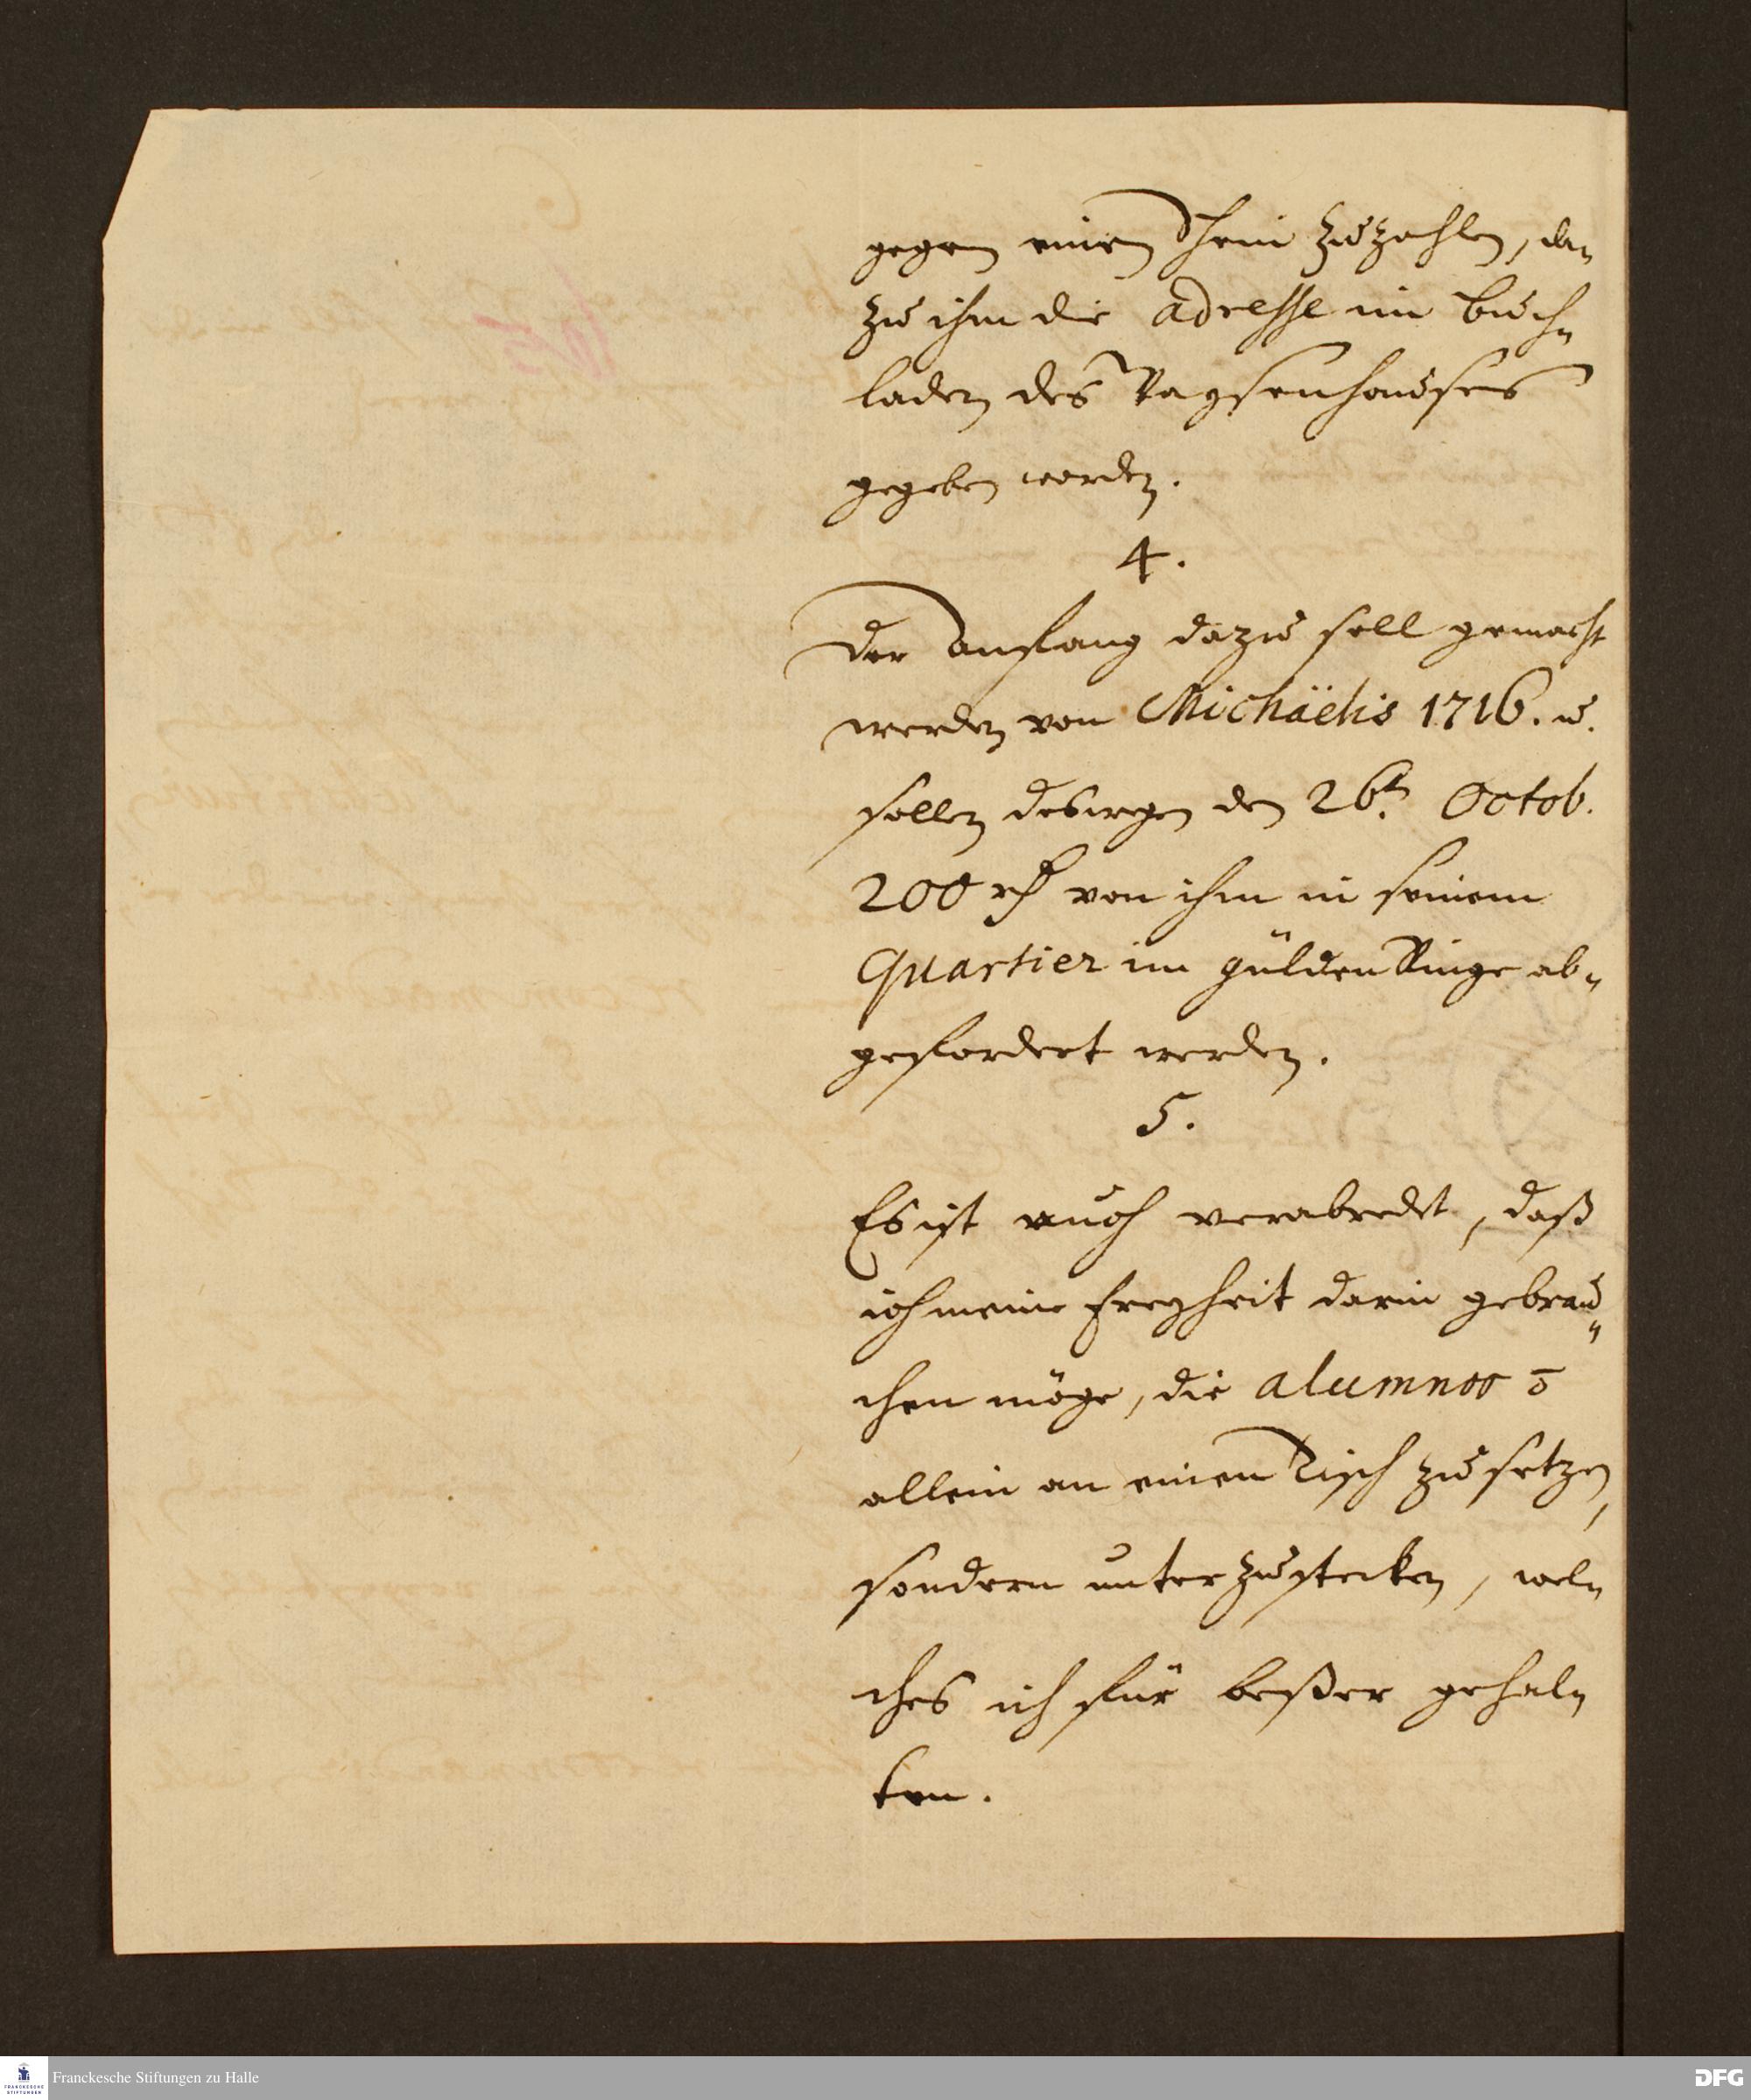 gegen einen Schein zu zahlen, da-
zu ihm die adresse im Buch-
laden des Waysenhauses
gegeben worden.
4.
Der Anfang dazu soll gemacht
werden von Michäelis 1716. u.
sollen deswegen den 26t. Octob.
200 rth von ihm in seinem
Quartier im gülden Ringe ab-
gefordert werden.
5.
Es ist auch verabredet, daß
ich meine Freyheit darin gebrau-
chen möge, die alumnos õ
allein an einen Tisch zu setzen,
sondern unter zu stecken, wel-
ches ich für beßer gehal-
ten.
Franckesche Stiftungen zu Halle
FRANCKESCHE
STIFTUNGEN
DFG